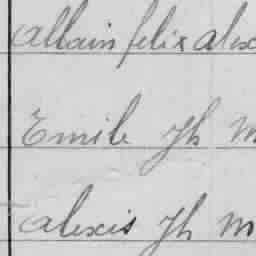 allain felix alex
Emile Jh M
alexis Jh M